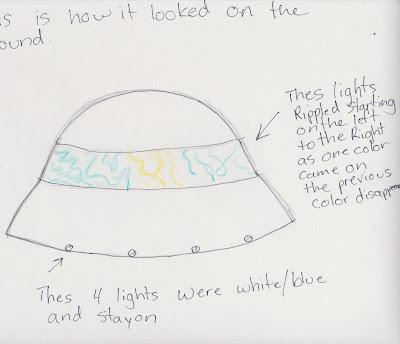 s is how it looked on the
ound.
Thes lights
Rippled starting
on the left
to the Right
as one color
came on
the previous
color disappea
Thes 4 lights were white/blue
and stayon